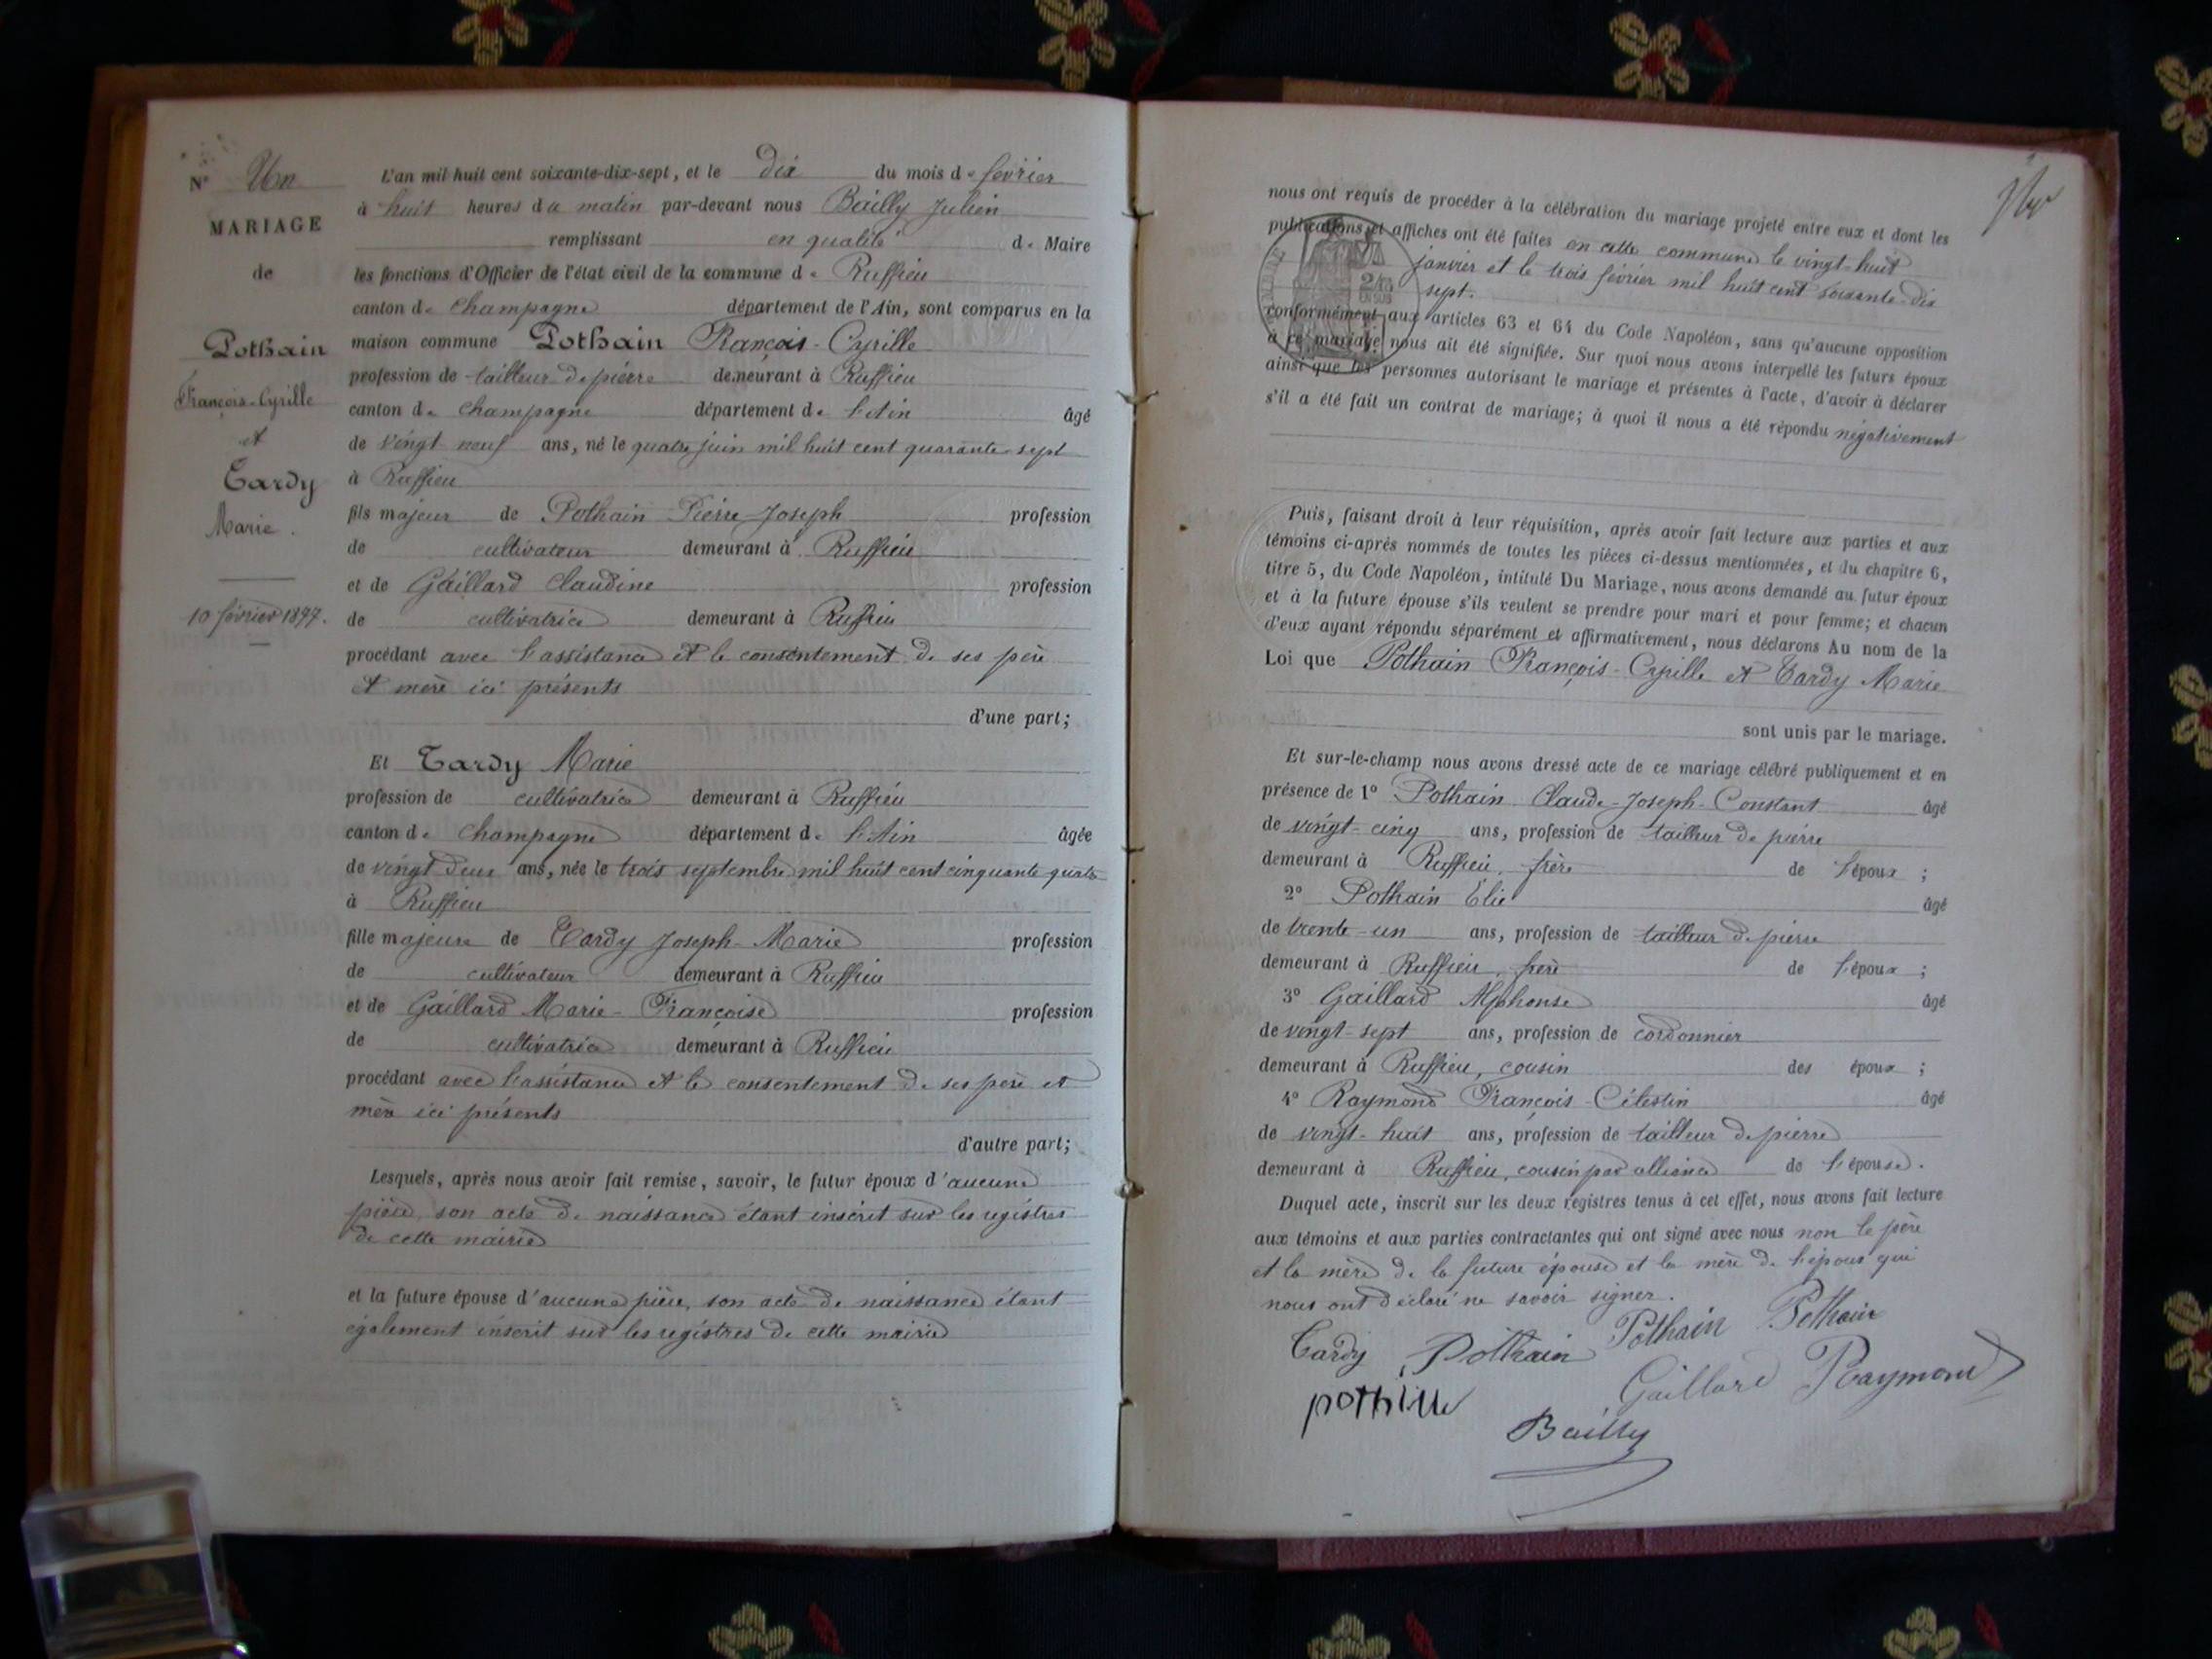 N° Un
MARIAGE
de
Pothain
François-Cyrille
et
Tardy
Marie.
10 février 1877.
L'an mil huit cent soixante-dix-sept, et le dix du mois de février
à huit heures du matin par-devant nous Bailly Julien
remplissant en qualité de Maire
les fonctions d'Officier de l'état civil de la commune de Ruffieu
canton de Champagne département de l'Ain, sont comparus en la
maison commune Pothain François-Cyrille
profession de tailleur de pierre demeurant à Ruffieu
canton de Champagne département de l'Ain âgé
de vingt neuf ans, né le quatre juin mil huit cent quarante-sept
à Ruffieu
fils majeur de Pothain Pierre-Joseph profession
de cultivateur demeurant à Ruffieu
et de Gaillard Claudine profession
de cultivatrice demeurant à Ruffieu
procédant avec l'assistance et le consentement de ses père
et mère ici présents
d'une part;
Et Tardy Marie
profession de cultivatrice demeurant à Ruffieu
canton de Champagne département de l'Ain âgée
de vingt deux ans, née le trois septembre mil huit cent cinquante quatre
à Ruffieu
fille majeure de Tardy Joseph-Marie profession
de cultivateur demeurant à Ruffieu
et de Gaillard Marie-Françoise profession
de cultivatrice demeurant à Ruffieu
procédant avec l'assistance et le consentement de ses père et
mère ici présents
d'autre part;
Lesquels, après nous avoir fait remise, savoir, le futur époux d'aucune
pièce, son acte de naissance étant inscrit sur les registres
de cette mairie
et la future épouse d'aucune pièce, son acte de naissance étant
également inscrit sur les registres de cette mairie
nous ont requis de procéder à la célébration du mariage projeté entre eux et dont les
publications et affiches ont été faites en cette commune le vingt-huit
janvier et le trois février mil huit cent soixante-dix
sept.
conformément aux articles 63 et 64 du Code Napoléon, sans qu'aucune opposition
à ce mariage nous ait été signifiée. Sur quoi nous avons interpellé les futurs époux
ainsi que les personnes autorisant le mariage et présentes à l'acte, d'avoir à déclarer
s'il a été fait un contrat de mariage; à quoi il nous a été répondu négativement
Puis, faisant droit à leur réquisition, après avoir fait lecture aux parties et aux
témoins ci-après nommés de toutes les pièces ci-dessus mentionnées, et du chapitre 6,
titre 5, du Code Napoléon, intitulé Du Mariage, nous avons demandé au futur époux
et à la future épouse s'ils veulent se prendre pour mari et pour femme; et chacun
d'eux ayant répondu séparément et affirmativement, nous déclarons Au nom de la
Loi que Pothain François-Cyrille et Tardy Marie
sont unis par le mariage.
Et sur-le-champ nous avons dressé acte de ce mariage célébré publiquement et en
présence de 1° Pothain Claude-Joseph-Constant âgé
de vingt-cinq ans, profession de tailleur de pierre
demeurant à Ruffieu, frère de l'époux ;
2° Pothain Elie âgé
de trente-un ans, profession de tailleur de pierre
demeurant à Ruffieu, frère de l'époux ;
3° Gaillard Alphonse âgé
de vingt-sept ans, profession de cordonnier
demeurant à Ruffieu, cousin des époux ;
4° Raymond François-Célestin âgé
de vingt-huit ans, profession de tailleur de pierre
demeurant à Ruffieu, cousin par alliance de l'épouse.
Duquel acte, inscrit sur les deux registres tenus à cet effet, nous avons fait lecture
aux témoins et aux parties contractantes qui ont signé avec nous non le père
et la mère de la future épouse et la mère de l'époux qui
nous ont déclaré ne savoir signer.
Tardy Pothain Pothain Pothain
Gaillard Raymond
Bailly